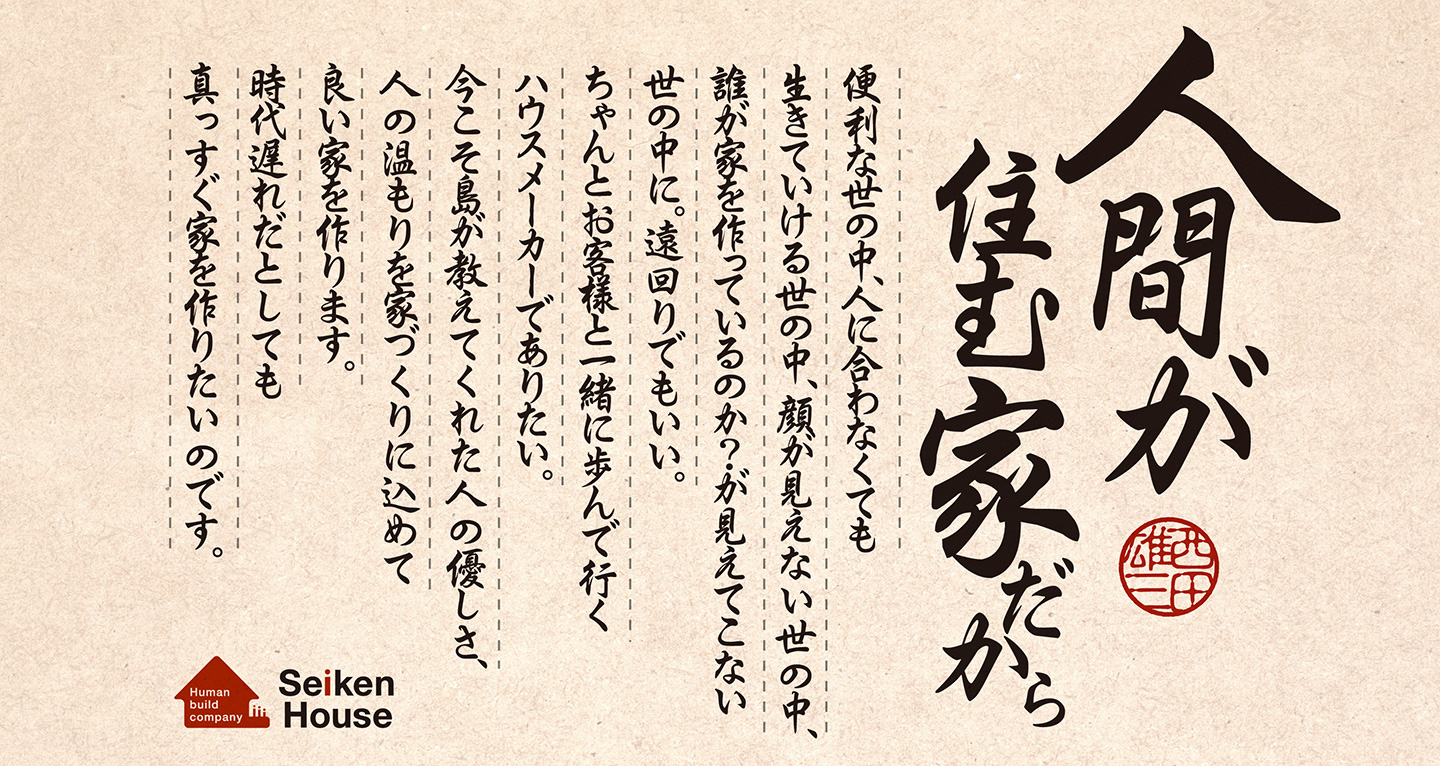 人間が
住む家だから
西田
雄三
便利な世の中、人に合わなくても
生きていける世の中、顔が見えない世の中、
誰が家を作っているのか?が見えてこない
世の中に。遠回りでもいい。
ちゃんとお客様と一緒に歩んで行く
ハウスメーカーでありたい。
今こそ島が教えてくれた人の優しさ、
人の温もりを家づくりに込めて
良い家を作ります。
時代遅れだとしても
真っすぐ家を作りたいのです。
Human
build
company
Seiken
House